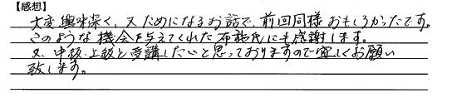 【感想】
大変興味深く、又ためになるお話で、前回同様おもしろかったです。
このような機会を与えてくれた布施氏にも感謝します。
又、中級、上級と受講したいと思っておりますので宜しくお願い
致します。